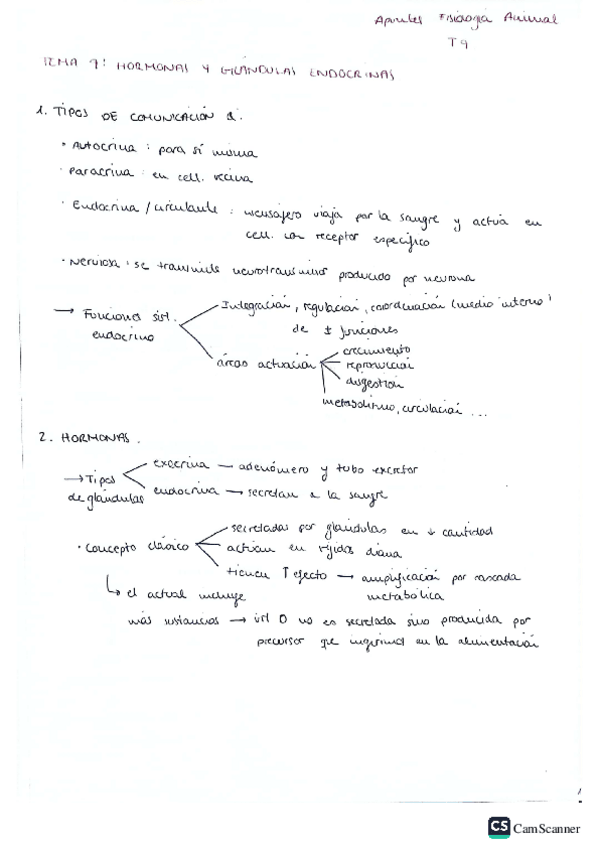 Apuntes Fisiología Animal
T9
TEMA 9: HORMONAS Y GLÁNDULAS ENDOCRINAS
1. TIPOS DE COMUNICACIÓN
• Autocrina : para sí misma
• Paracrina : en cell. vecina
• Endocrina / circulante : mensajero viaja por la sangre y actúa en
cell. con receptor específico
• Nerviosa : se transmite neurotransmisor producido por neurona
→ Funciones sist.
endocrino
Integración, regulación, coordenación (medio interno)
de ± funciones
áreas actuación
crecimiento
reproducción
digestión
metabolismo, circulación ...
2. HORMONAS.
→ Tipos
de glándulas
exocrina — adenómero y tubo excretor
endocrina → secretan a la sangre
• Concepto clásico
secretadas por glándulas en ↓ cantidad
actúan en tejidos diana
tienen ↑ efecto → amplificación por cascada
metabólica
↳ el actual incluye
más sustancias → vit D no es secretada sino producida por
precursor que ingerimos en la alimentación
CS CamScanner